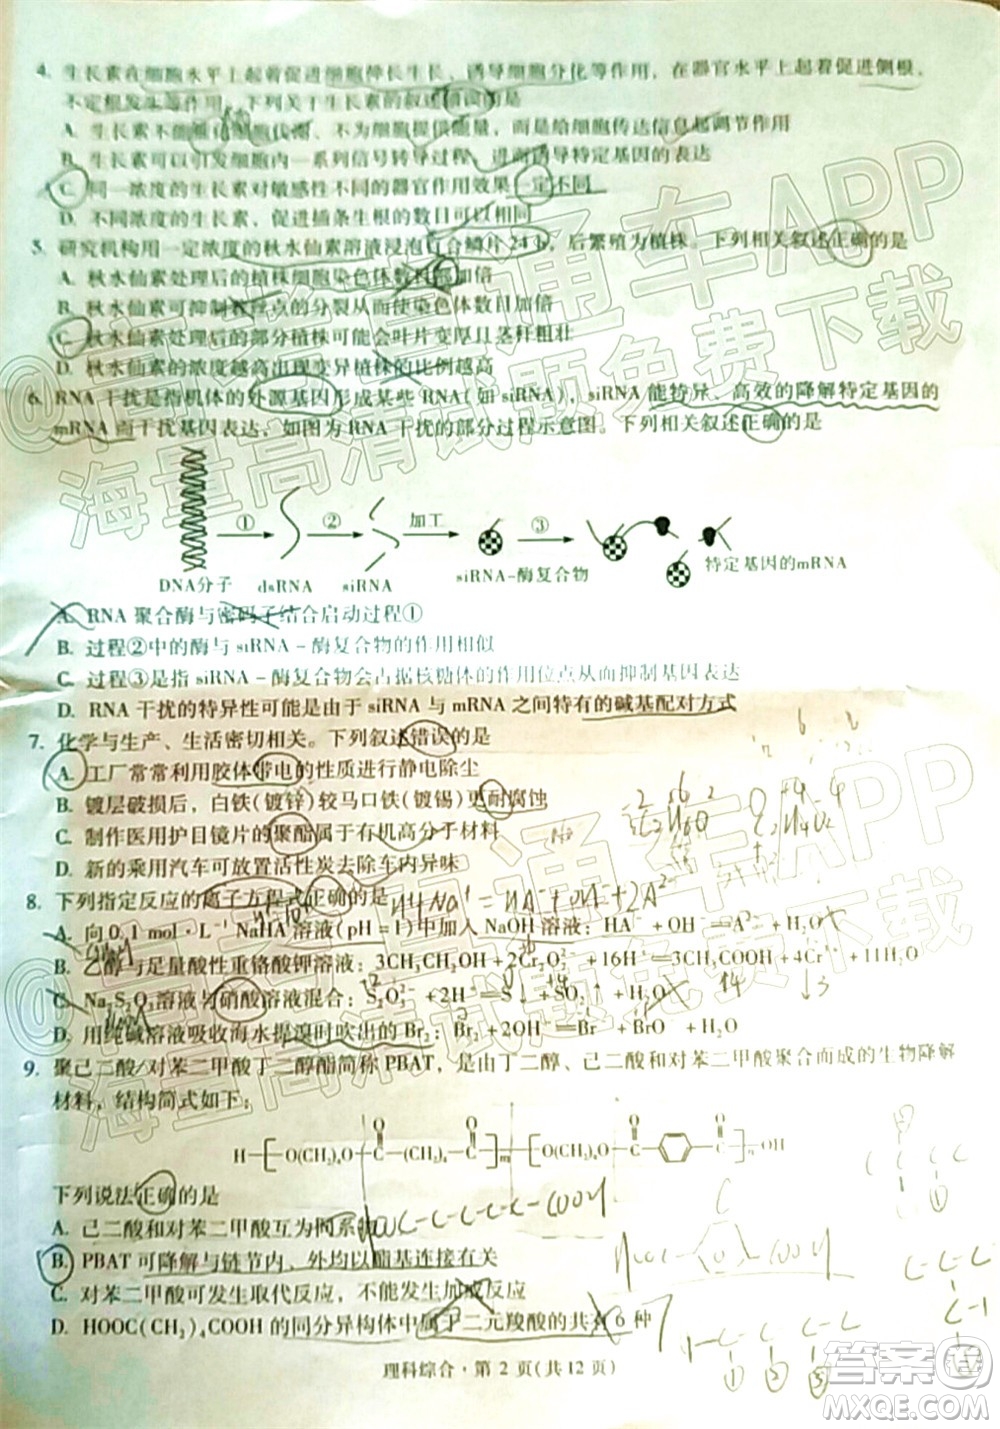 4. 生长素在细胞水平上起着促进细胞伸长生长、诱导细胞分化等作用，在器官水平上起着促进侧根、
不定根发生等作用。下列关于生长素的叙述错误的是
A. 生长素不能催化细胞代谢、不为细胞提供能量，而是给细胞传达信息起调节作用
B. 生长素可引发细胞内一系列信号转导过程、进而诱导特定基因的表达
C. 同一浓度的生长素对敏感性不同的器官作用效果一定不同
D. 不同浓度的生长素，促进插条生根的数目可以相同
5. 研究机构用一定浓度的秋水仙素溶液浸泡百合鳞片24 h，后繁殖为植株。下列相关叙述正确的是
A. 秋水仙素处理后的植株细胞染色体数目都加倍
B. 秋水仙素可抑制着丝点的分裂从而使染色体数目加倍
C. 秋水仙素处理后的部分植株可能会叶片变厚且茎秆粗壮
D. 秋水仙素的浓度越高出现变异植株的比例越高
6. RNA 干扰是指机体的外源基因形成某些 RNA(如 siRNA)，siRNA 能特异、高效的降解特定基因的
mRNA 而干扰基因表达，如图为 RNA 干扰的部分过程示意图。下列相关叙述正确的是
① ② 加工 ③
DNA分子 dsRNA siRNA siRNA-酶复合物 特定基因的mRNA
A. RNA 聚合酶与密码子结合启动过程①
B. 过程②中的酶与 siRNA-酶复合物的作用相似
C. 过程③是指 siRNA-酶复合物会占据核糖体的作用位点从而抑制基因表达
D. RNA 干扰的特异性可能是由于 siRNA 与 mRNA 之间特有的碱基配对方式
7. 化学与生产、生活密切相关。下列叙述错误的是
A. 工厂常常利用胶体带电的性质进行静电除尘
B. 镀层破损后，白铁(镀锌)较马口铁(镀锡)更耐腐蚀
C. 制作医用护目镜片的聚酯属于有机高分子材料
D. 新的乘用汽车可放置活性炭去除车内异味
8. 下列指定反应的离子方程式正确的是
A. 向 0.1 mol·L⁻¹ NaHA 溶液(pH=1)中加入 NaOH 溶液：HA⁻+OH⁻=A²⁻+H₂O
B. 乙醇与足量酸性重铬酸钾溶液：3CH₃CH₂OH+2Cr₂O₇²⁻+16H⁺=3CH₃COOH+4Cr³⁺+11H₂O
C. Na₂S₂O₃溶液与硝酸溶液混合：S₂O₃²⁻+2H⁺=S↓+SO₂↑+H₂O
D. 用纯碱溶液吸收海水提溴时吹出的 Br₂：Br₂+2OH⁻=Br⁻+BrO⁻+H₂O
9. 聚己二酸/对苯二甲酸丁二醇酯简称 PBAT，是由丁二醇、己二酸和对苯二甲酸聚合而成的生物降解
材料，结构简式如下：
H O(CH₂)₄O C (CH₂)₄ C m O(CH₂)₄O C C n OH
下列说法正确的是
A. 己二酸和对苯二甲酸互为同系物
B. PBAT 可降解与链节内、外均以酯基连接有关
C. 对苯二甲酸可发生取代反应，不能发生加成反应
D. HOOC(CH₂)₄COOH 的同分异构体中属于二元羧酸的共有 6 种
理科综合·第 2 页(共 12 页)